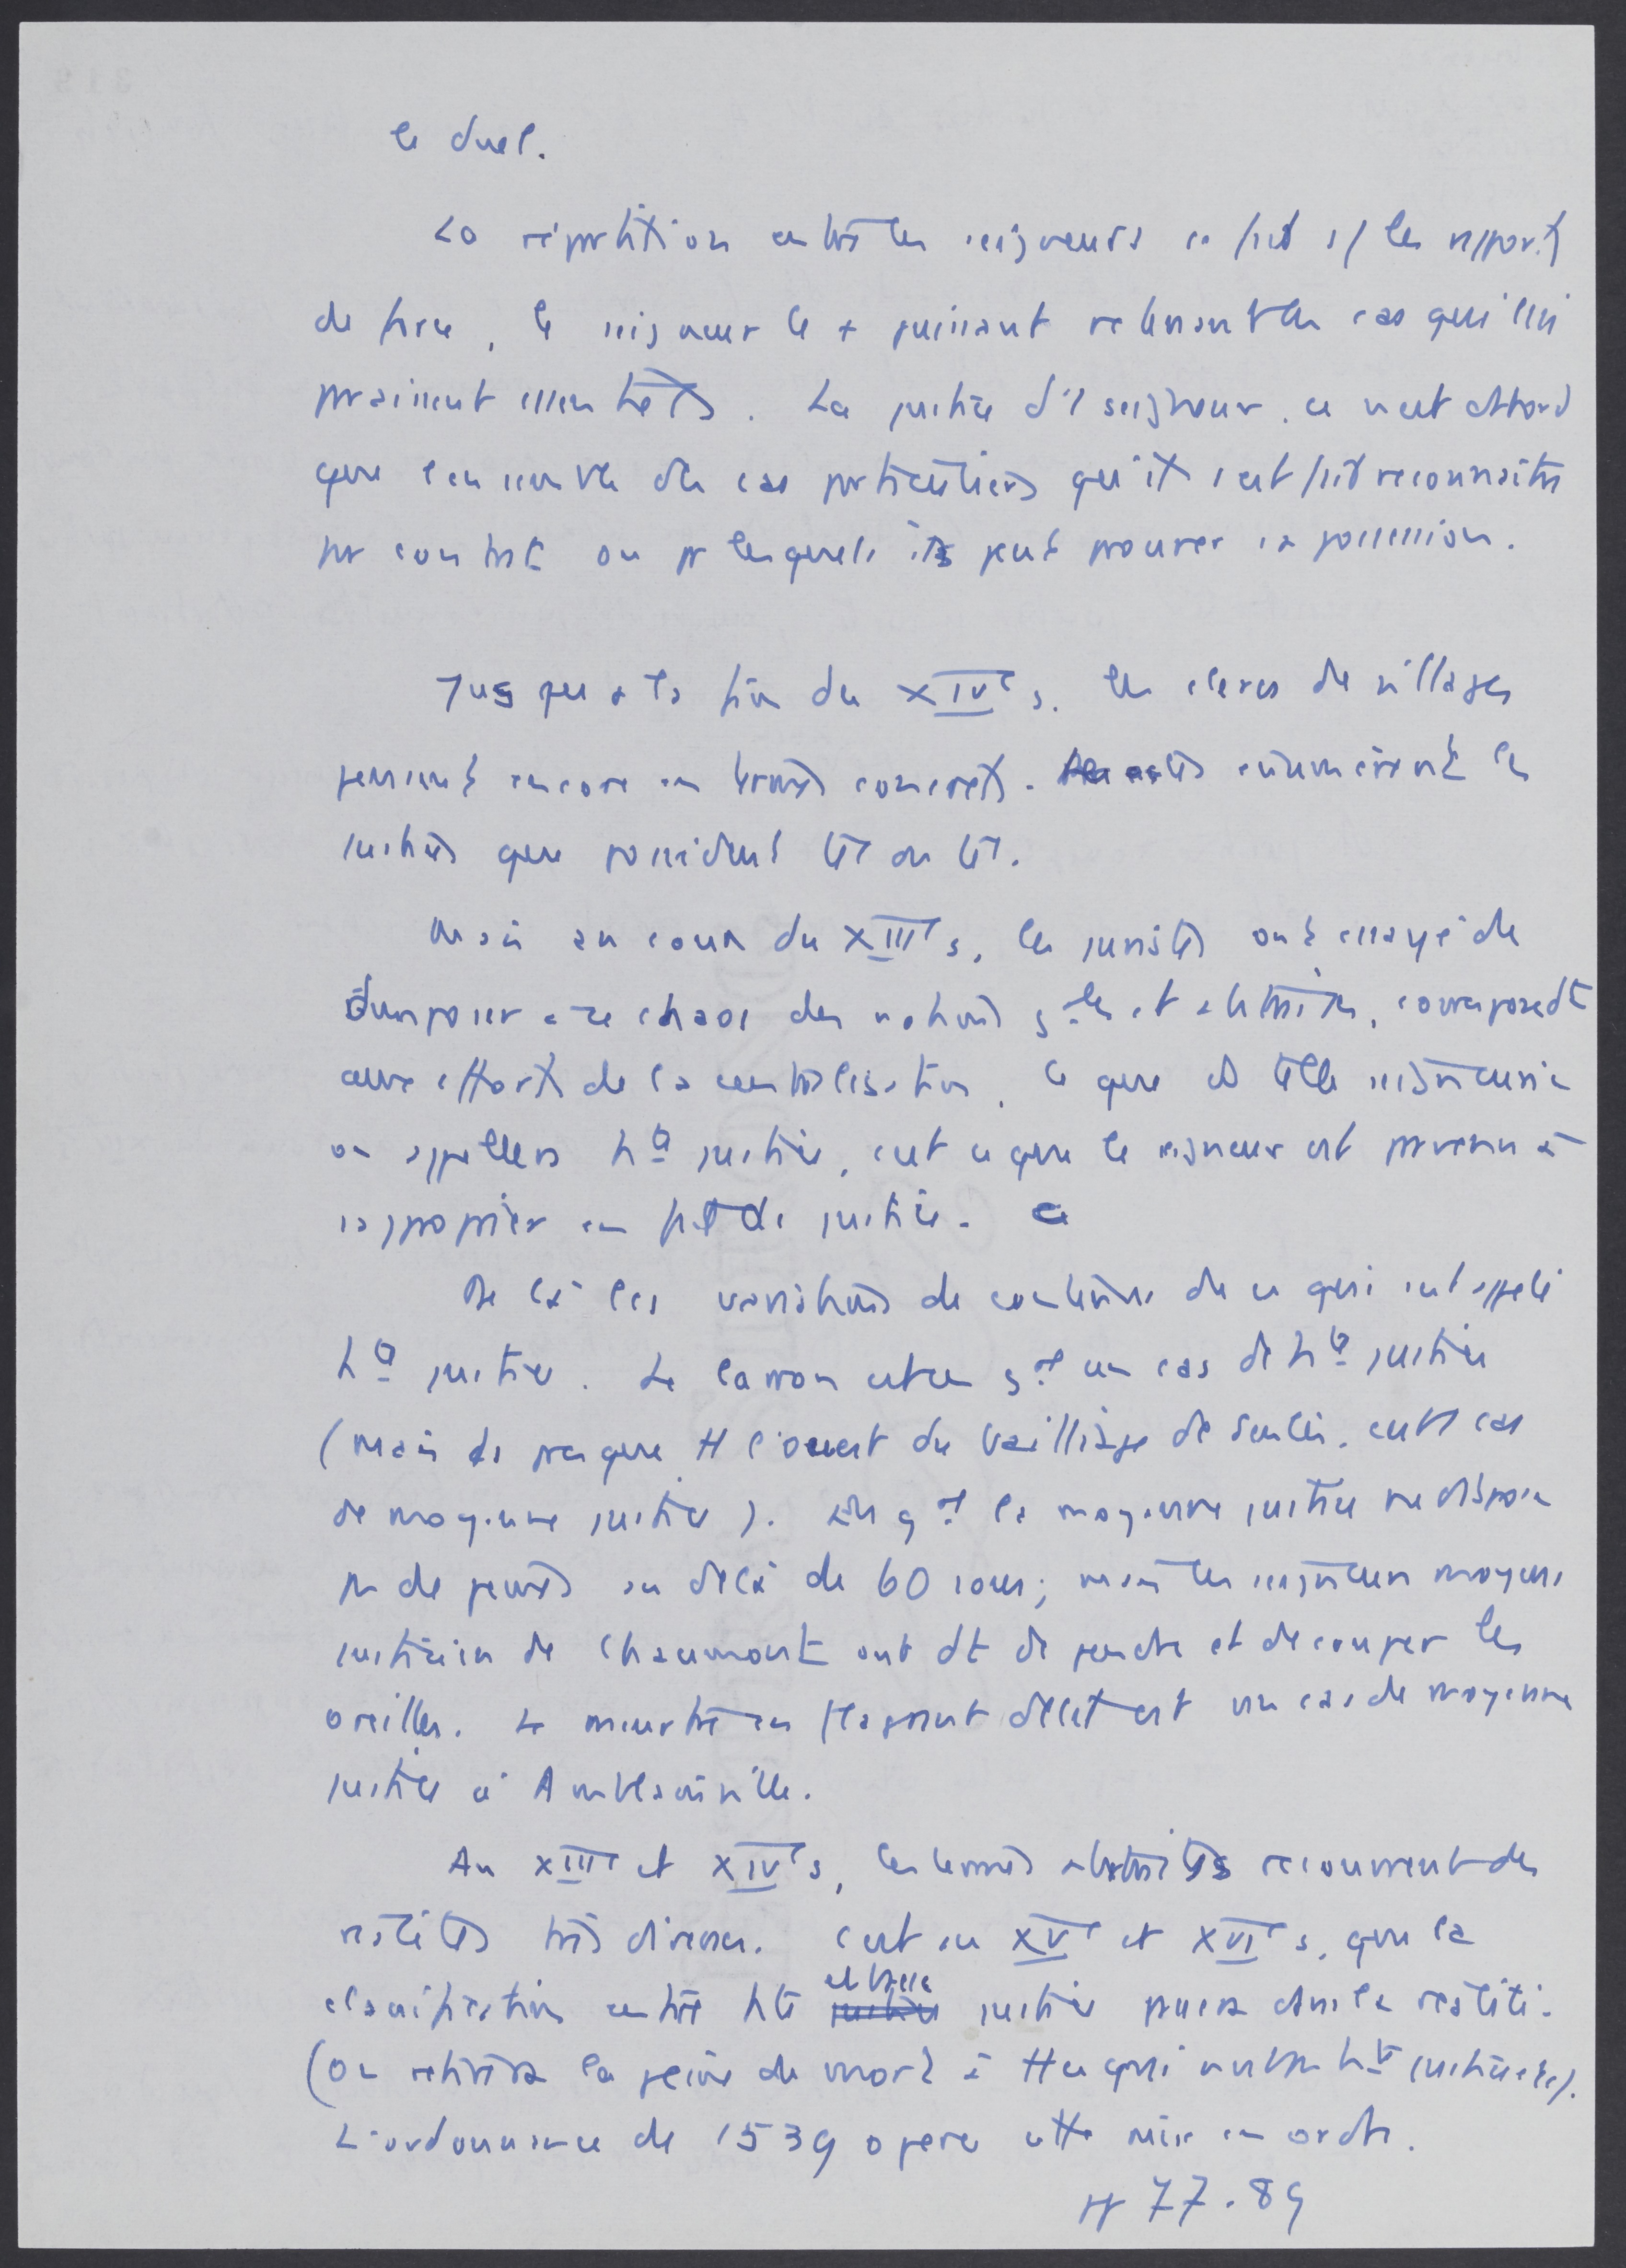 le duel.
La répartition entre les seigneurs se fait s/ les rapports
de force, le seigneur le + puissant retenant les cas qui lui
paraissent essentiels. La justice d'1 seigneur, ce n'est d'abord
que l'ensemble des cas particuliers qu'il s'est fait reconnaître
par contrat ou pr lesquels il peut prouver sa possession.
Jusque à la fin du XIVe s. les clercs de villages
pensent encore en termes concrets. énumèrent les
justices que possèdent tel ou tel.
Mais au cours du XIIIe s, les juristes ont essayé de
superposer à ce chaos des notions gales et abstraites, correspondt
aux efforts de la centralisation. Ce que ds telle seigneurie
on appellera hte justice, c'est ce que le seigneur est parvenu à
s'approprier en fait de justice.
De là les variations de contenu de ce qui est appelé
hte justice. Le larron est en gal un cas de hte justice
(mais ds presque tt l'ouest du bailliage de Senlis, c'est 1 cas
de moyenne justice). En gal la moyenne justice ne dispose
pas de peines au delà de 60 sous; mais les seigneurs moyens
justiciers de Chaumont ont dt de pendre et de couper les
oreilles. Le meurtre en flagrant délit est un cas de moyenne
justice à Amblainville.
Au XIIIe et XIVe s, les termes abstraits recouvrent des
réalités très diverses. C'est au XVe et XVIe s, que la
classification entre hte et basse justice passa dans la réalité.
(On retirera la peine de mort à tt ce qui n'est pas hte justice etc).
L'ordonnance de 1539 opère cette mise en ordre.
pp 77.89